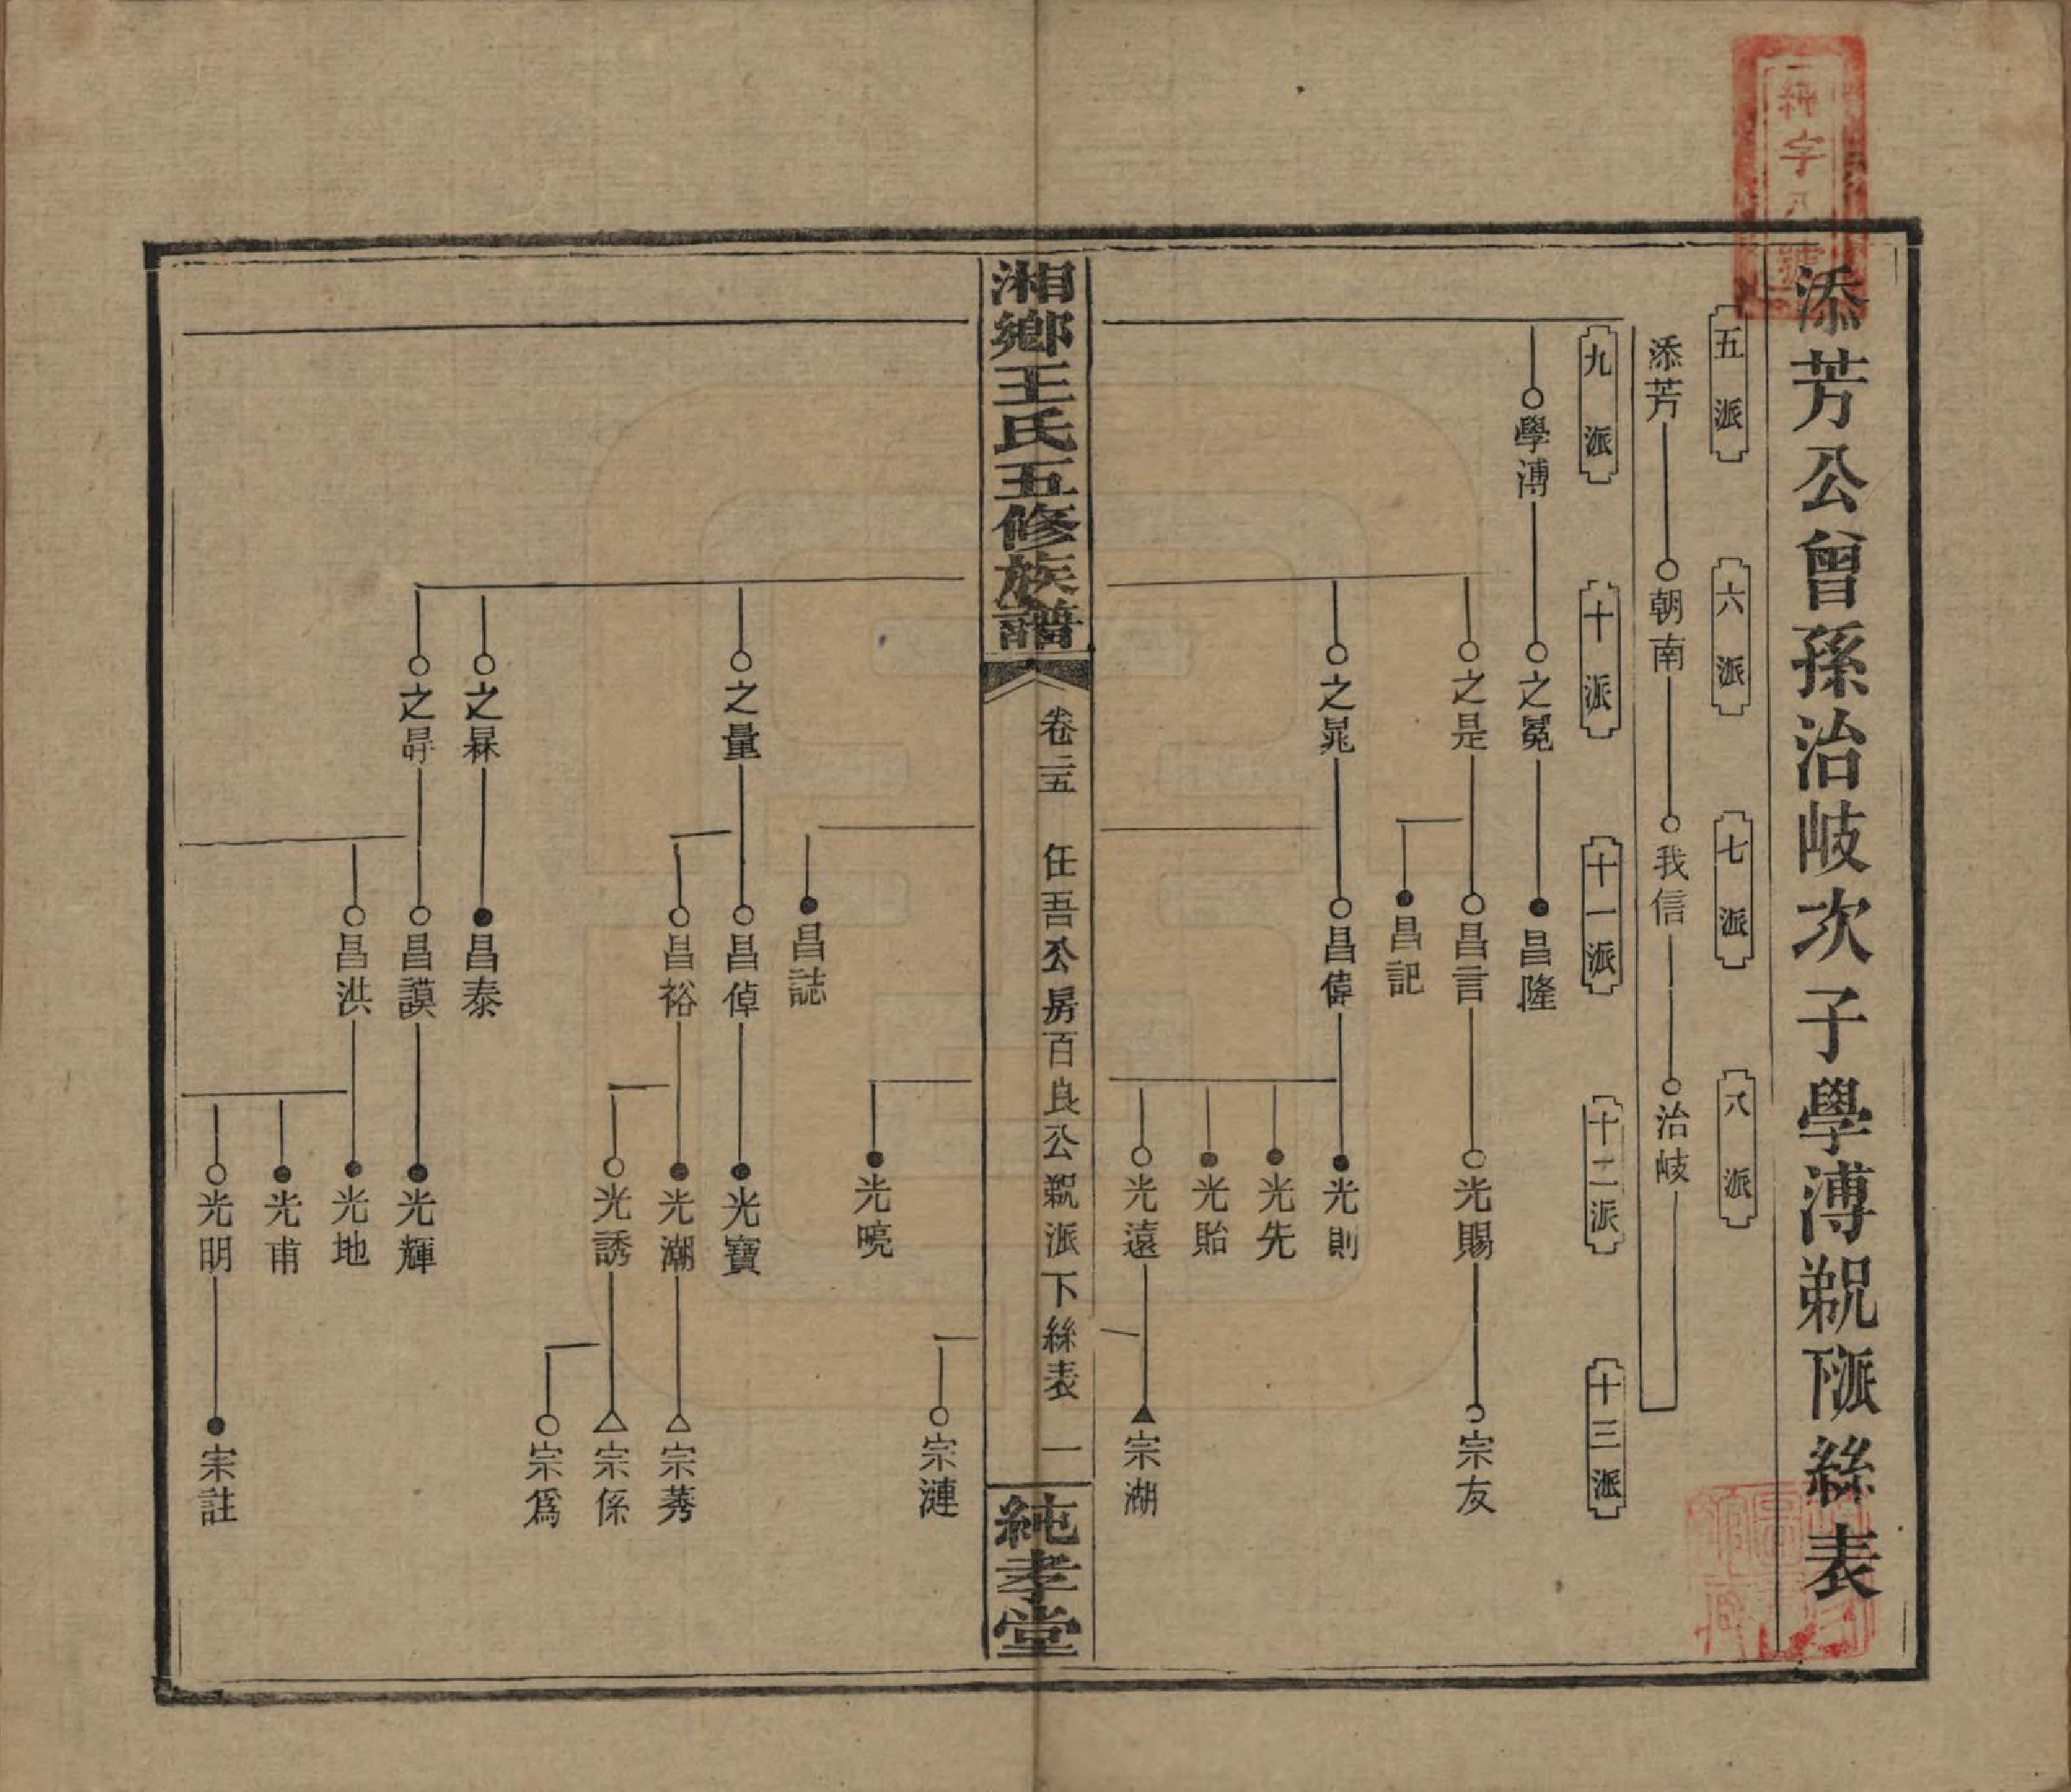 添芳公曾孫治岐次子學溥派下派絲表
五派
六派
七派
八派
添芳
朝南
我信
治岐
九派
十派
十一派
十二派
十三派
學溥
之冕
昌隆
之是
昌言
光賜
宗友
昌記
之晁
昌偉
光則
光先
光貽
光遠
宗湖
湘鄉王氏五修族譜
卷二五
任吾公房百良公派下絲表
一
純孝堂
宗漣
光曉
昌誌
之量
昌倬
光寶
昌裕
光潮
宗莠
光誘
宗係
宗爲
之槑
昌泰
之昪
昌謨
光輝
昌洪
光地
光甫
光明
宗註